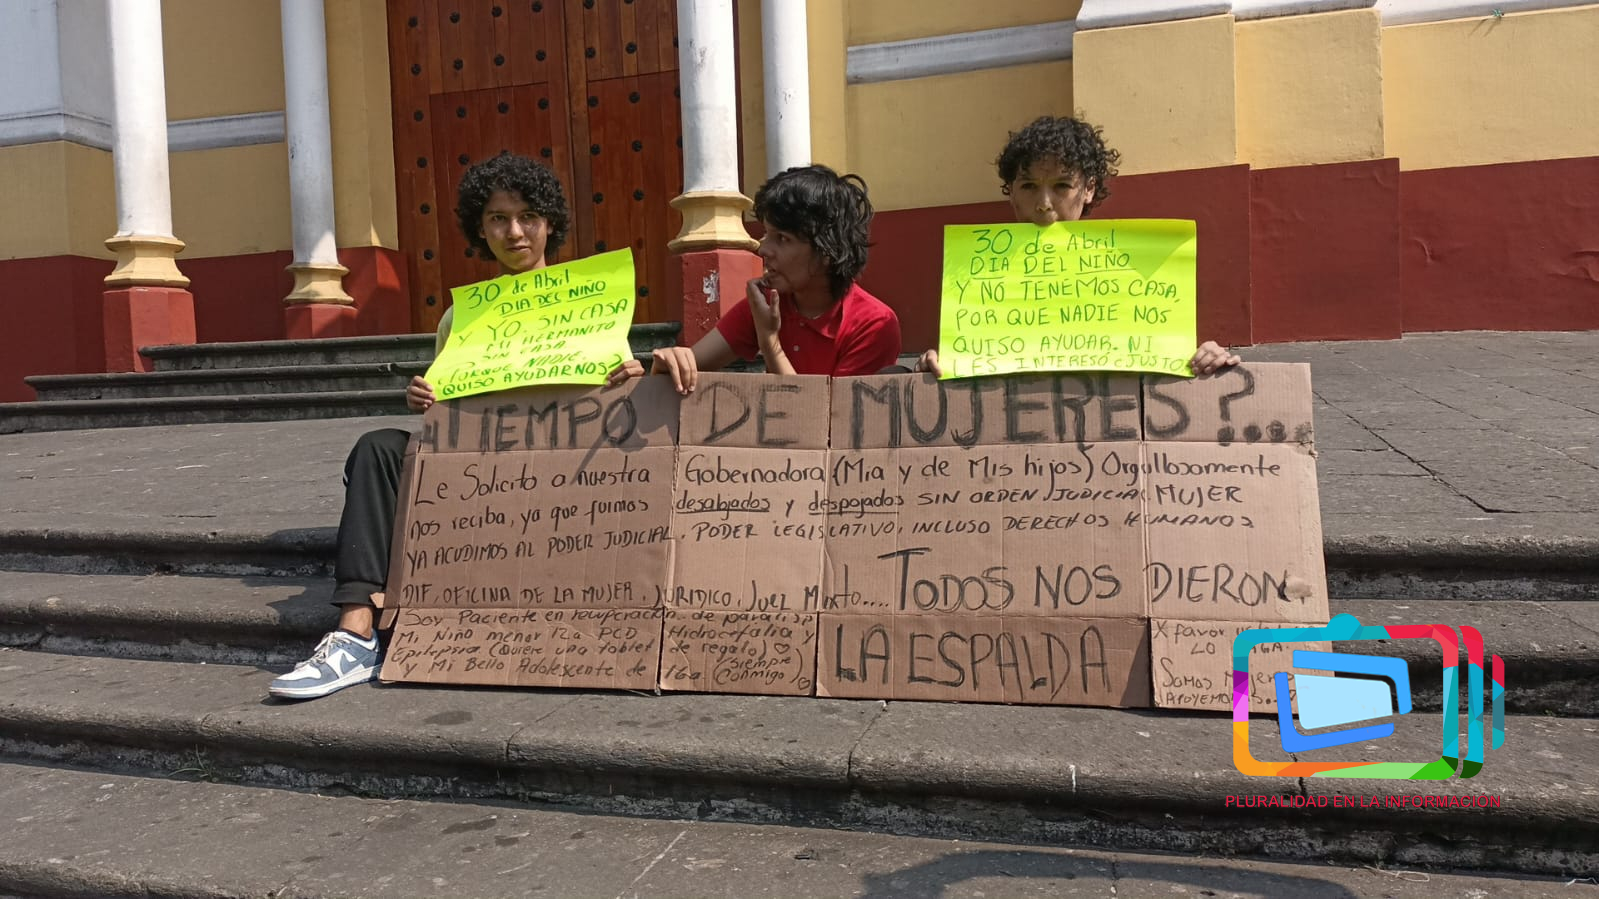 30 de Abril
DIA DEL NIÑO
Y YO, SIN CASA
MI HERMANITO
SIN CASA
PORQUE NADIE
QUISO AYUDARNOS?
30 de Abril
DIA DEL NIÑO
Y NO TENEMOS CASA,
POR QUE NADIE NOS
QUISO AYUDAR. NI
LES INTERESÓ JUSTO
TIEMPO DE MUJERES?...
Le Solicito a nuestra Gobernadora (Mia y de Mis hijos) Orgullosamente
nos reciba, ya que fuimos desalojados y despojados SIN ORDEN JUDICIAL MUJER
YA ACUDIMOS AL PODER JUDICIAL, PODER LEGISLATIVO, INCLUSO DERECHOS HUMANOS
DIF, OFICINA DE LA MUJER, JURIDICO, Juez Mixto.... TODOS NOS DIERON
LA ESPALDA
Soy Paciente en recuperación de
Mi Niño menor 12a PCD Hidrocefalia y
Epilepsia (Quiere una tablet de regalo)
y Mi Bello Adolescente de 16a. (siempre
Conmigo)
X favor
LO
Somos Mujeres
APOYEMO
PLURALIDAD EN LA INFORMACIÓN